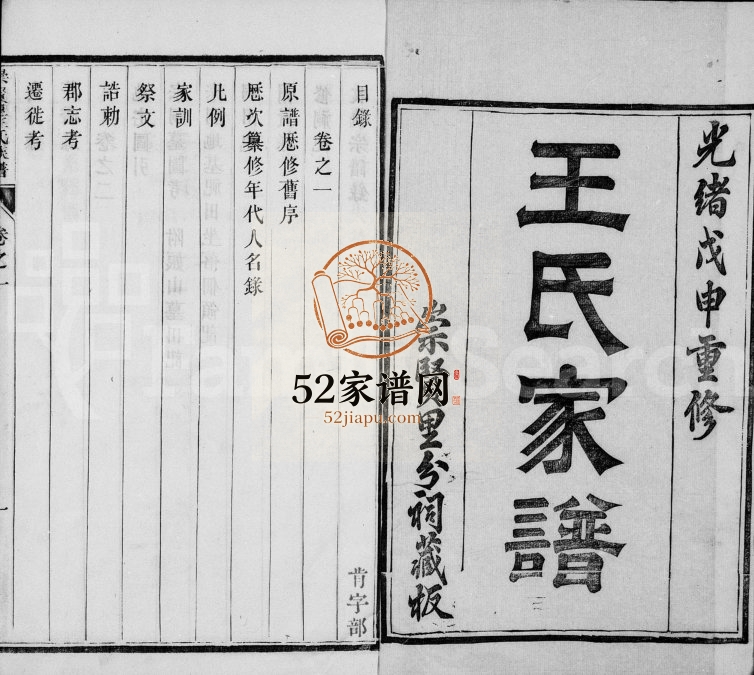 光緒戊申重修
王氏家譜
崇賢里分祠藏板
目錄
卷之一
原譜歷修舊序
歷次纂修年代人名錄
凡例
家訓
祭文
誥勅
郡志考
遷徙考
肯字部
卷之一
52家谱网
52jiapu.com